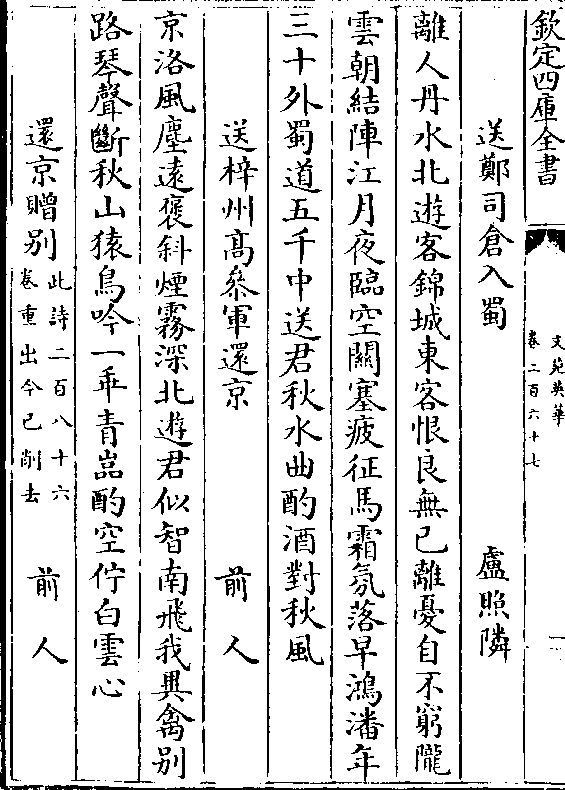 欽定四庫全書
文苑英華
卷二百六十七
一
送鄭司倉入蜀 盧照隣
離人丹水北遊客錦城東客恨良無已離憂自不窮隴
雲朝結陣江月夜臨空關塞疲征馬霜氛落早鴻潘年
三十外蜀道五千中送君秋水曲酌酒對秋風
送梓州髙叅軍還京 前人
京洛風塵遠褒斜煙霧深北遊君似智南飛我異禽别
路琴聲斷秋山猿鳥吟一乖青嵓酌空佇白雲心
還京贈别 此詩二百八十六
卷重出今已削去 前人